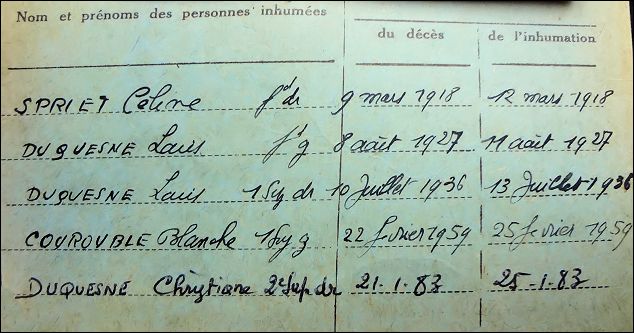 Nom et prénoms des personnes inhumées
du décès de l'inhumation
SPRIET Céline fd dr 9 mars 1918 12 mars 1918
DUQUESNE Louis fd g 8 août 1927 11 août 1927
DUQUESNE Louis 1 Sup dr 10 Juillet 1936 13 Juillet 1936
COUROUBLE Blanche 1 Sup g 22 février 1959 25 février 1959
DUQUESNE Chrystiane 2e Sup dr 21.1.83 25.1.83